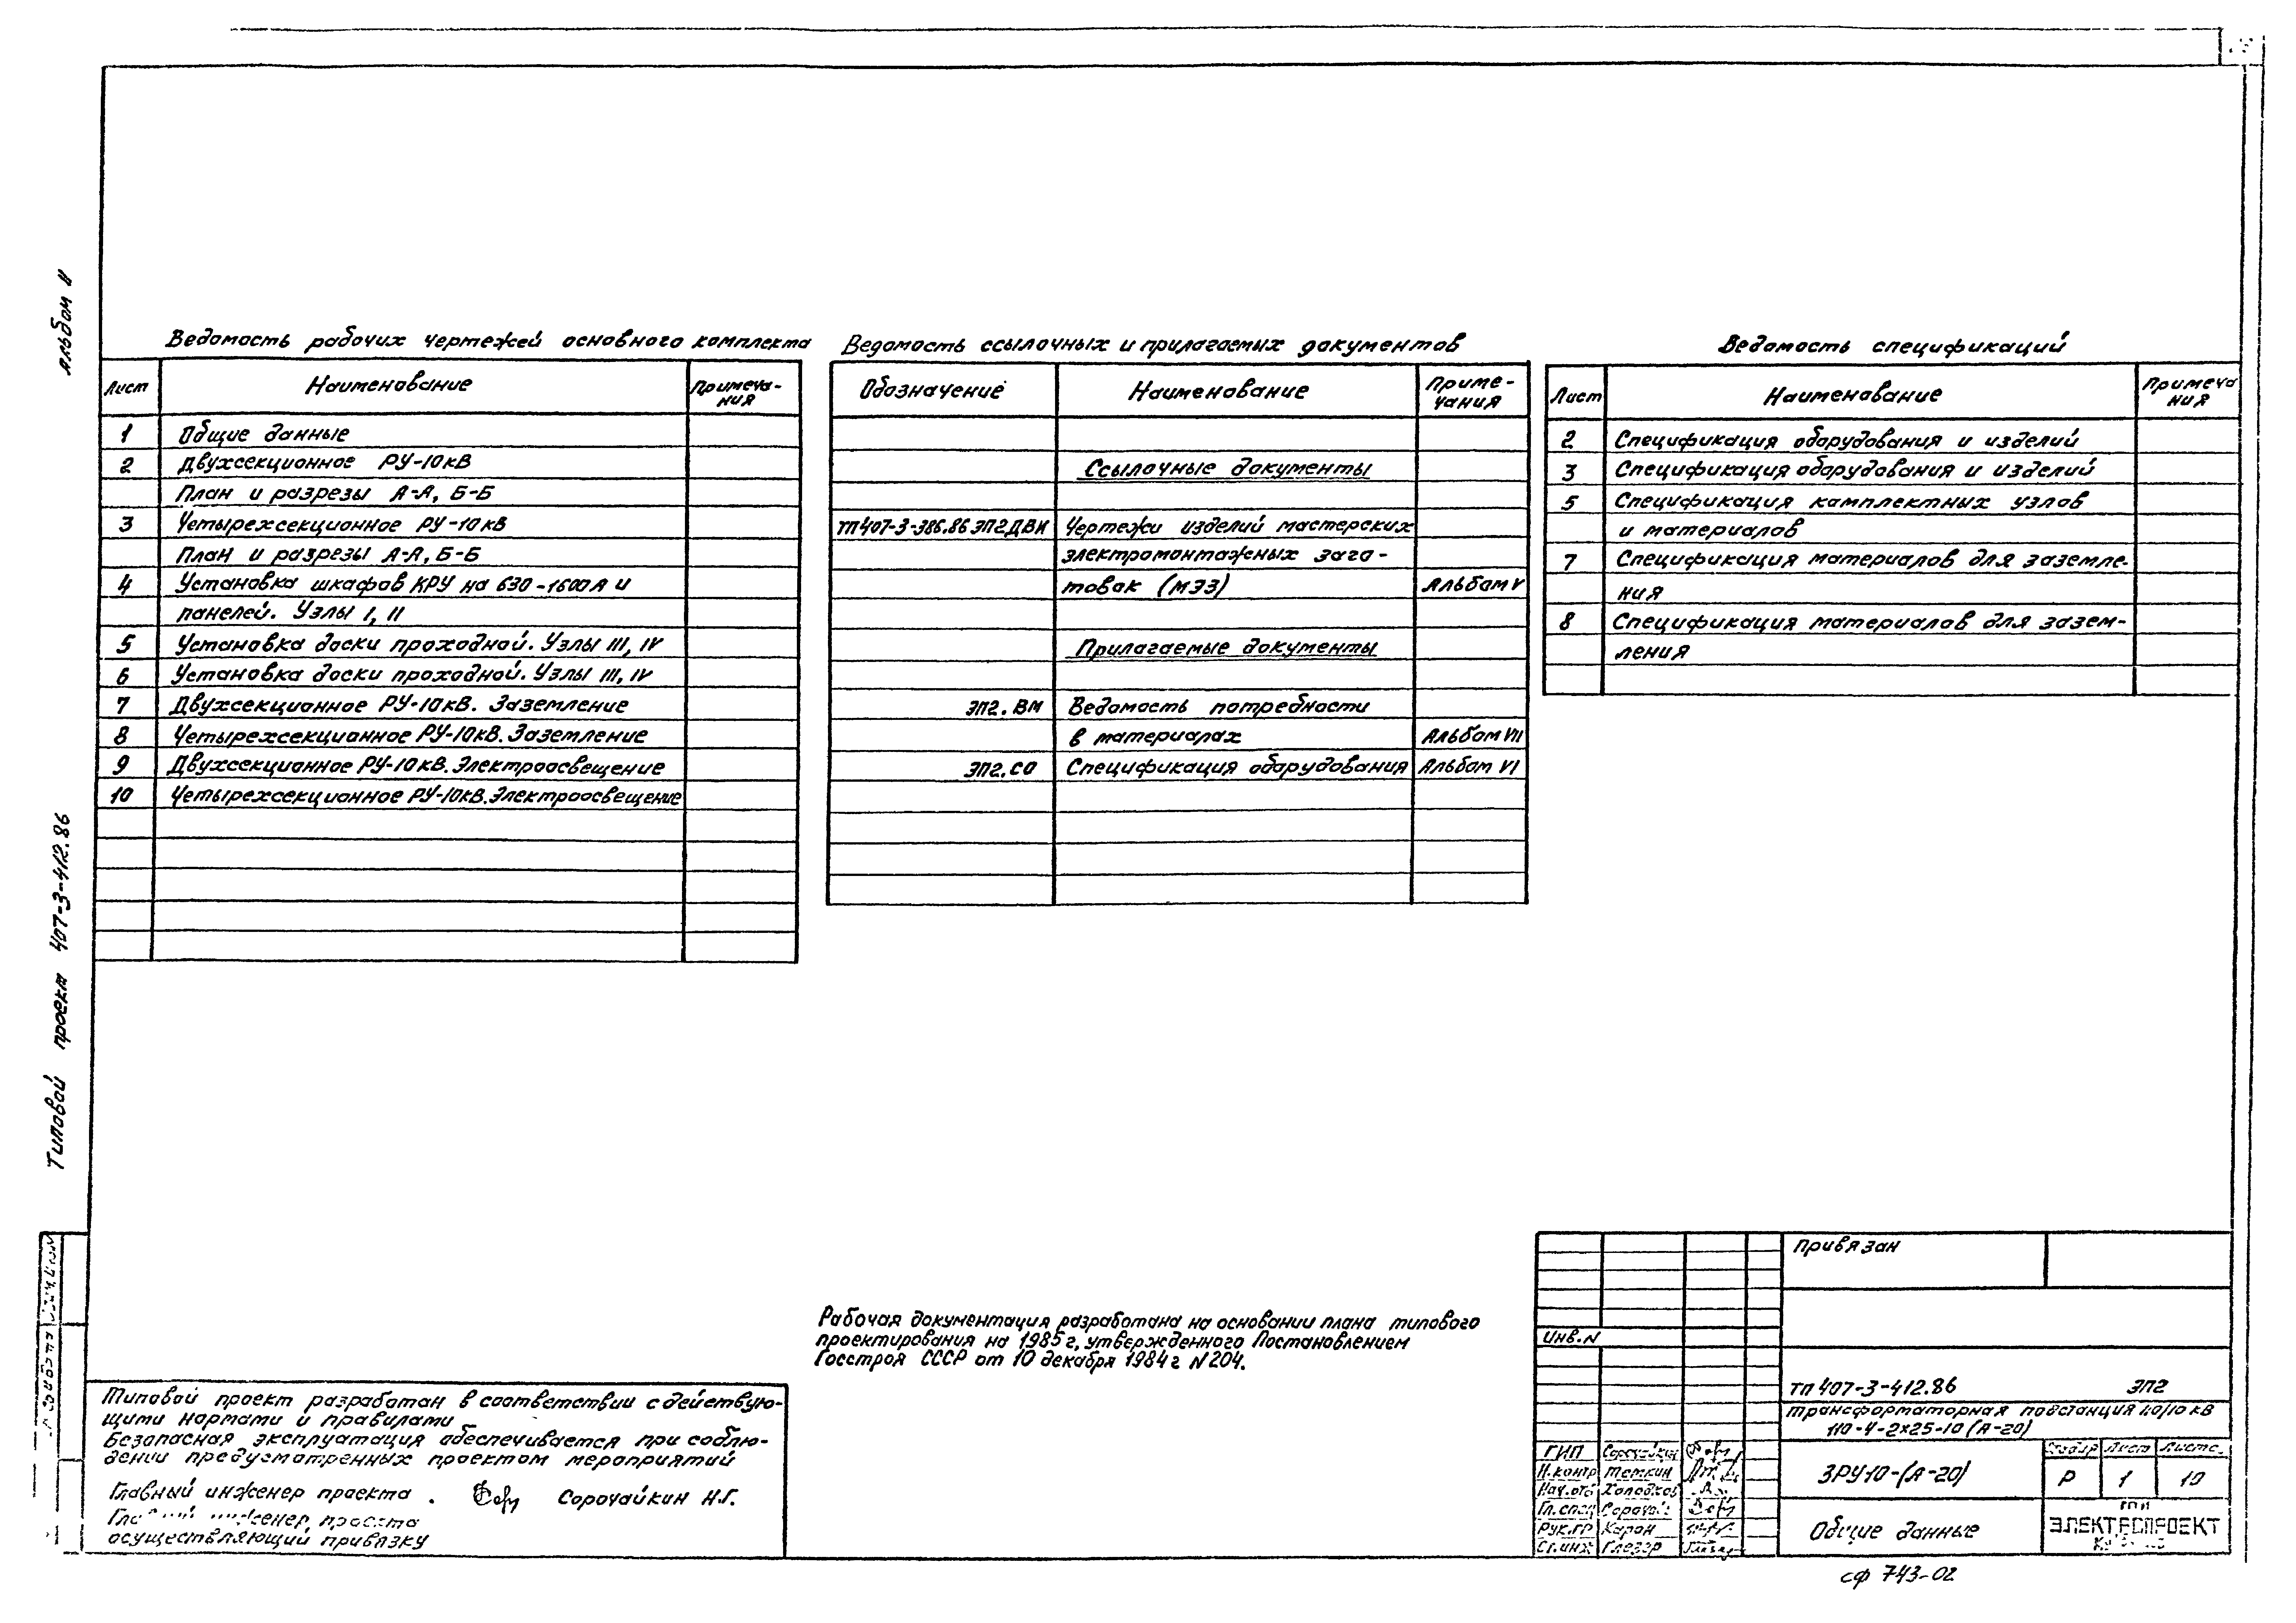 Альбом II
Типовой проект 407-3-412.86
Ведомость рабочих чертежей основного комплекта
Лист Наименование Примеча-
ния
1 Общие данные
2 Двухсекционное РУ-10кВ
План и разрезы А-А, Б-Б
3 Четырехсекционное РУ-10кВ
План и разрезы А-А, Б-Б
4 Установка шкафов КРУ на 630-1600А и
панелей. Узлы I, II
5 Установка доски проходной. Узлы III, IV
6 Установка доски проходной. Узлы III, IV
7 Двухсекционное РУ-10кВ. Заземление
8 Четырехсекционное РУ-10кВ. Заземление
9 Двухсекционное РУ-10кВ. Электроосвещение
10 Четырехсекционное РУ-10кВ. Электроосвещение
Ведомость ссылочных и прилагаемых документов
Обозначение Наименование Приме-
чания
Ссылочные документы
ТП407-3-386.86 ЭП2ДВИ Чертежи изделий мастерских
электромонтажных заго-
товок (МЭЗ) Альбом V
Прилагаемые документы
ЭП2.ВМ Ведомость потребности
в материалах Альбом VII
ЭП2.СО Спецификация оборудования Альбом VI
Ведомость спецификаций
Лист Наименование Примеча
ния
2 Спецификация оборудования и изделий
3 Спецификация оборудования и изделий
5 Спецификация комплектных узлов
и материалов
7 Спецификация материалов для заземле-
ния
8 Спецификация материалов для зазем-
ления
Рабочая документация разработана на основании плана типового
проектирования на 1985г, утвержденного Постановлением
Госстроя СССР от 10 декабря 1984г N204.
Типовой проект разработан в соответствии с действую-
щими нормами и правилами
Безопасная эксплуатация обеспечивается при соблю-
дении предусмотренных проектом мероприятий
Главный инженер проекта Сорочайкин Н.Г.
инженер проекта
осуществляющий привязку
Привязан
Инв.N
ТП 407-3-412.86 ЭП2
Трансформаторная подстанция 110/10 кВ
110-4-2х25-10 (А-20)
ГИП Сорочайкин
Н.контр Темкин
Нач.отд Холодков
Гл.спец
Рук.гр Карон
Ст.инж Глезер
ЗРУ10-(А-20)
Стадия Лист Листов
Р 1 10
Общие данные
ГПИ
ЭЛЕКТРОПРОЕКТ
сф 743-02